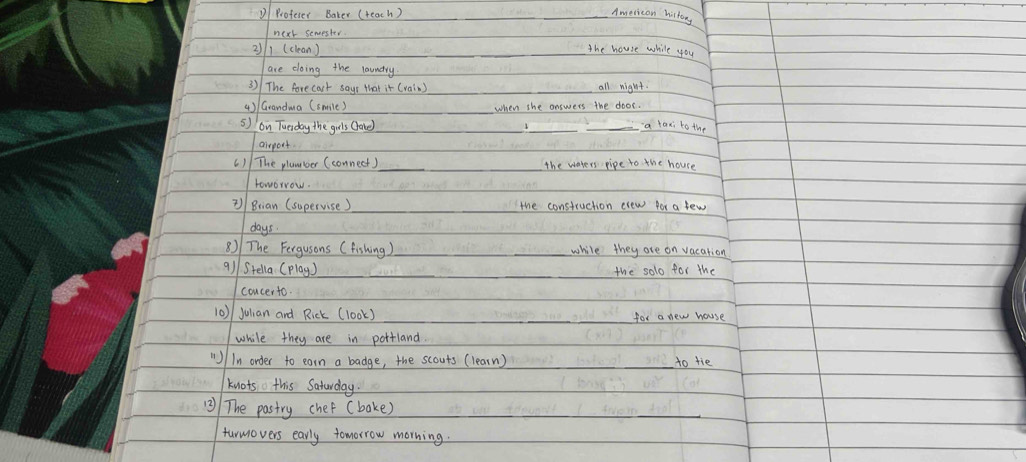 1) Profeser Baker (teach) ___ ___ ___ American history
next semester.
2) I (clean) ___ ___ ___ the house while you
are doing the laundry.
3) The forecast says that it (rain) ___ ___ ___ all night.
4) Grandma (smile) ___ ___ ___ when she answers the door.
5) On Tuesday the girls (take) ___ ___ ___ a taxi to the
airport.
6) The plumber (connect) ___ ___ ___ the waters pipe to the house
tomorrow.
7) Brian (supervise) ___ ___ ___ the construction crew for a few
days.
8) The Fergusons (fishing) ___ ___ ___ while they are on vacation
9) Stella (play) ___ ___ ___ the solo for the
concerto.
10) Julian and Rick (look) ___ ___ ___ for a new house
while they are in pottland
11) In order to earn a badge, the scouts (learn) ___ ___ ___ to tie
knots this Saturday.
12) The pastry chef (bake) ___ ___ ___
turnovers early tomorrow morning.